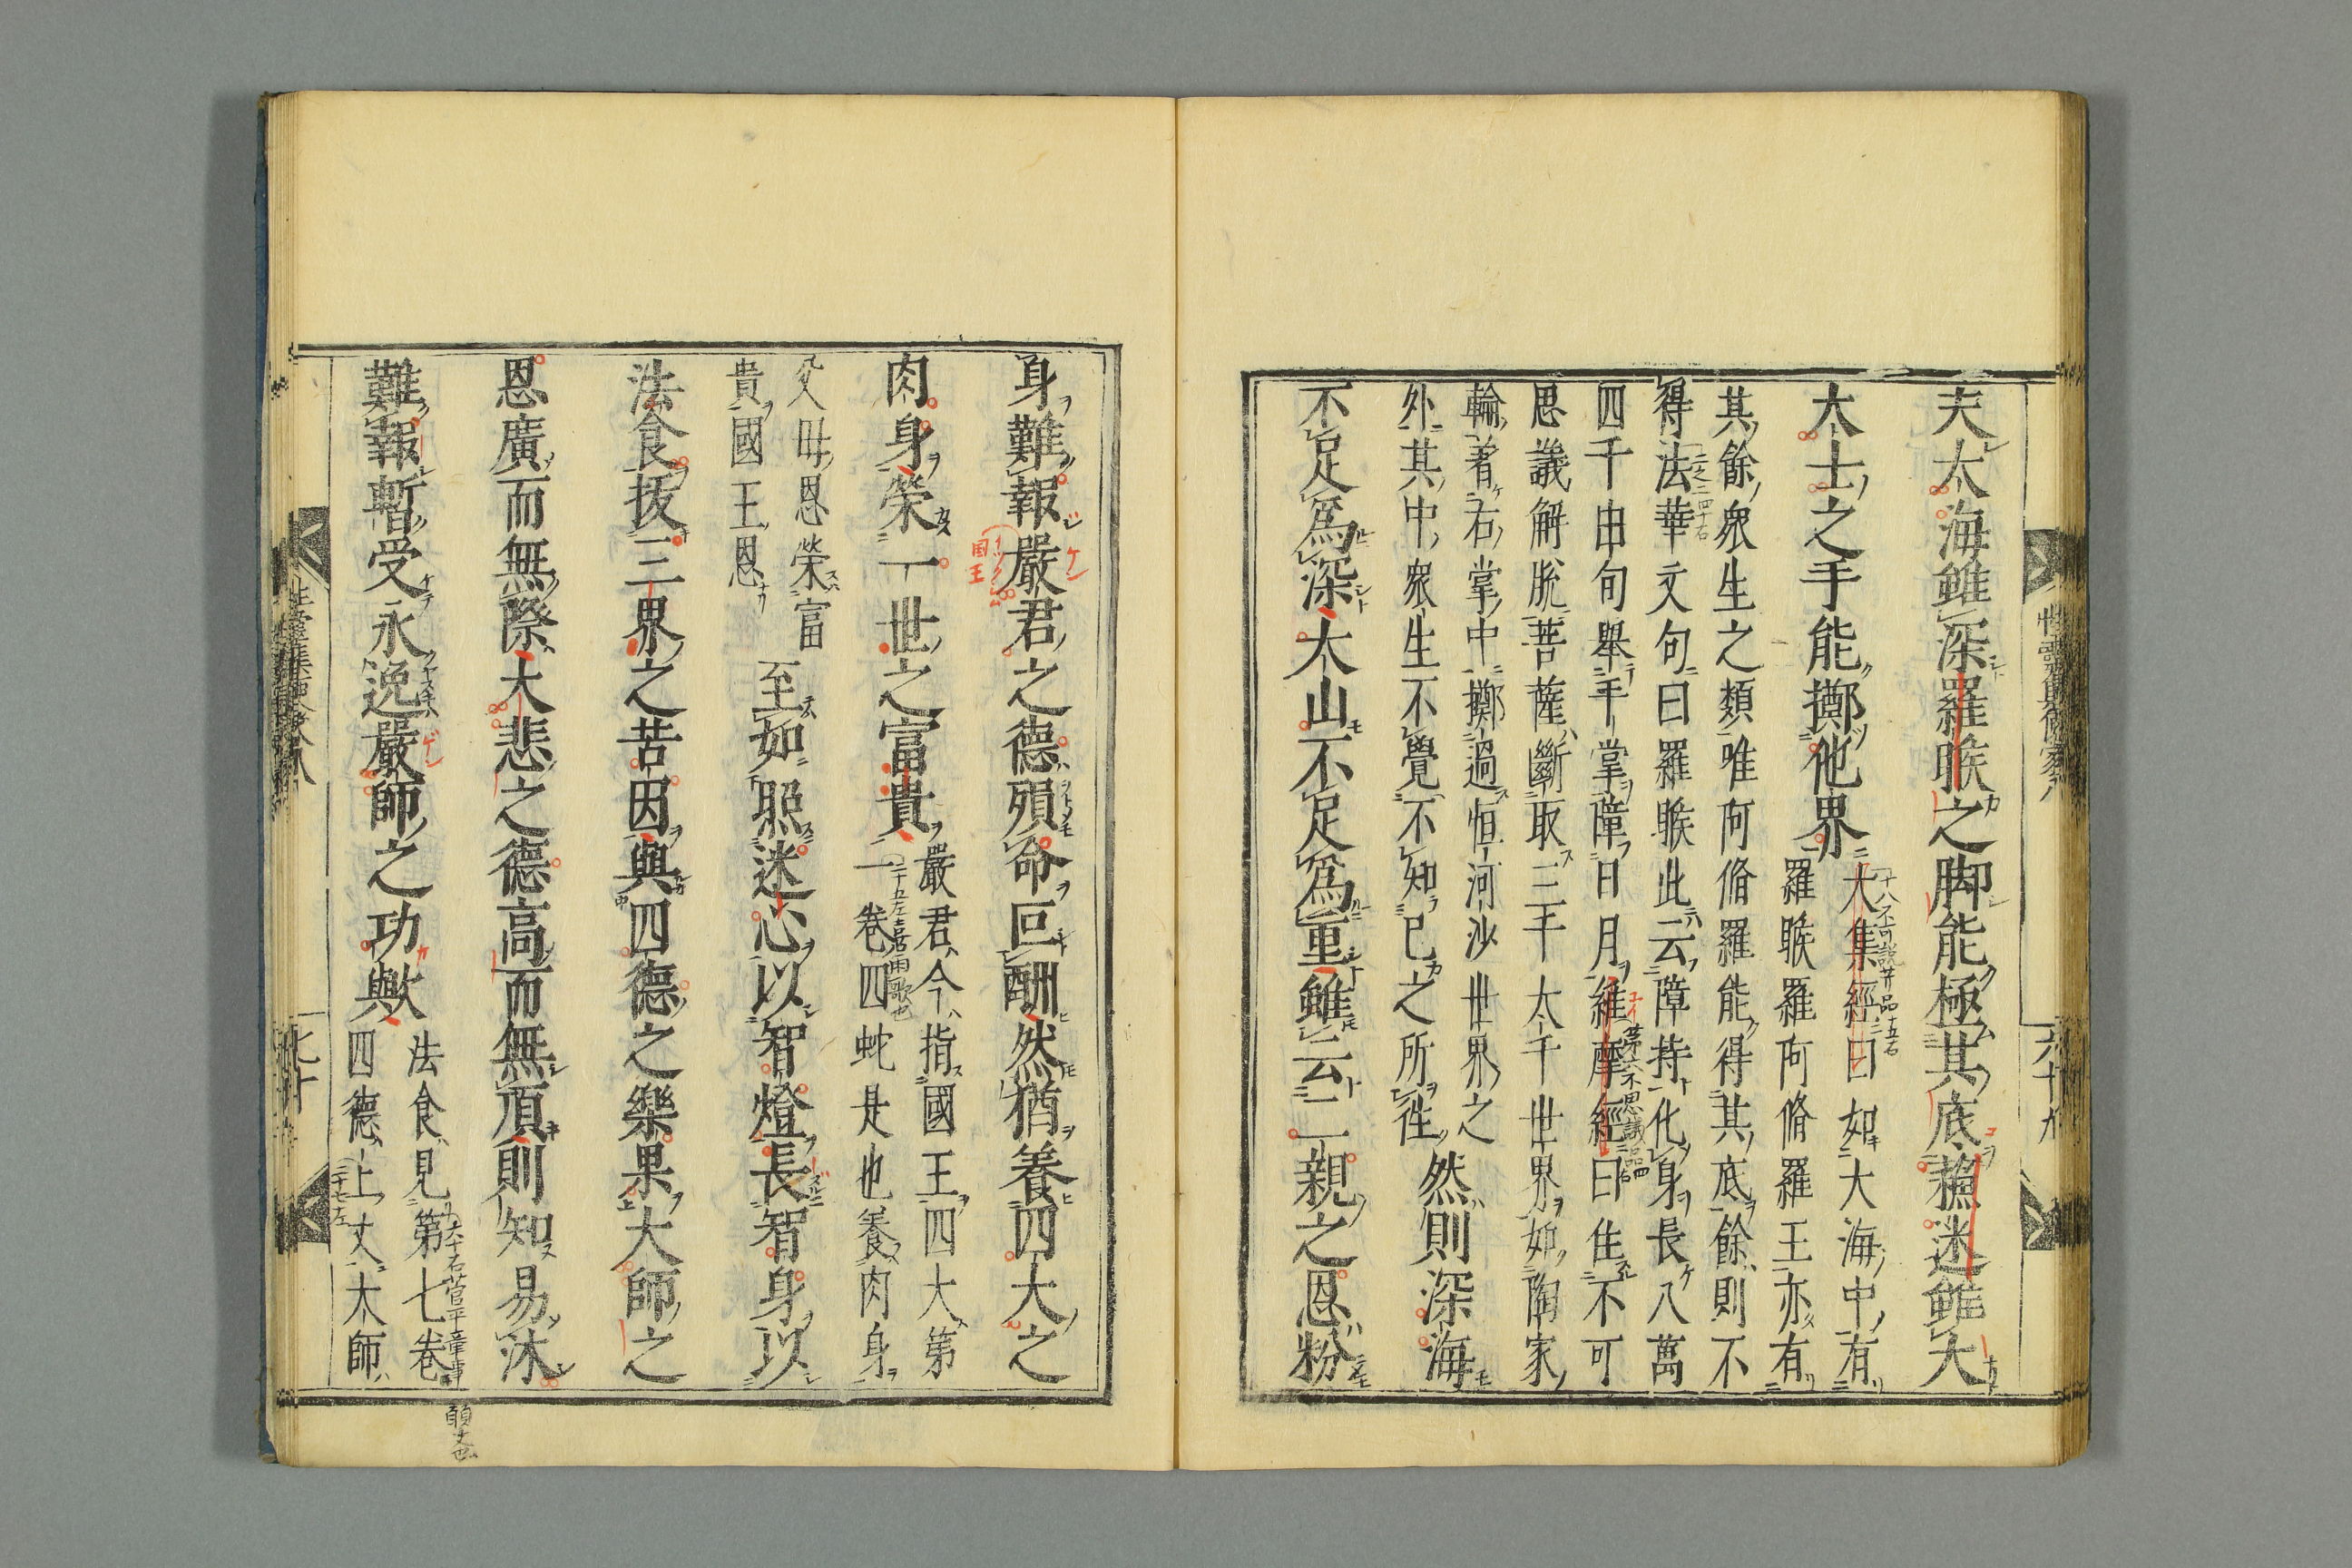 夫大海雖深羅睺之脚能極其底蘓迷雖大
大士之手能擲他界
大集經曰如大海中有
羅睺羅阿脩羅王亦有
其餘衆生之類唯阿脩羅能得其底餘則不
得法華文句曰羅睺此云障持化身長八萬
四千由旬舉手掌障日月維摩經曰住不可
思議解脫菩薩斷取三千大千世界如陶家
輪著右掌中擲過恒河沙世界之
外其中衆生不覺不知己之所往
然則深海
不足爲深大山不足爲重雖云二親之恩粉
身難報嚴君之德殞命叵酬然猶養四大之
肉身榮一世之富貴
嚴君今指國王四大第
二卷四蛇是也養肉身
父母恩榮富
貴國王恩
至如照迷心以智燈長智身以
法食拔三界之苦因與四德之樂果大師之
恩廣而無際大悲之德高而無頂則知易沐
難報暫受永逸嚴師之功歟
法食見第七卷
四德上丈大師
六十九
七十
国王